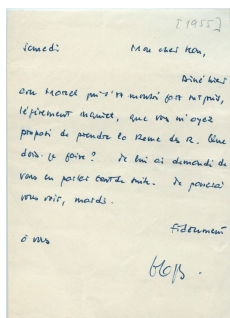 [1955]
Samedi Mon cher
Dîné hier
avec Marcel qui s'est montré fort surpris,
légèrement, que vous m'ayez
proposé de prendre la Reine des R. Que
dois-je faire ? Je lui ai demandé de
vous en parler tout de suite. Je pourrai
vous voir, mardi.
Fidèlement
à vous